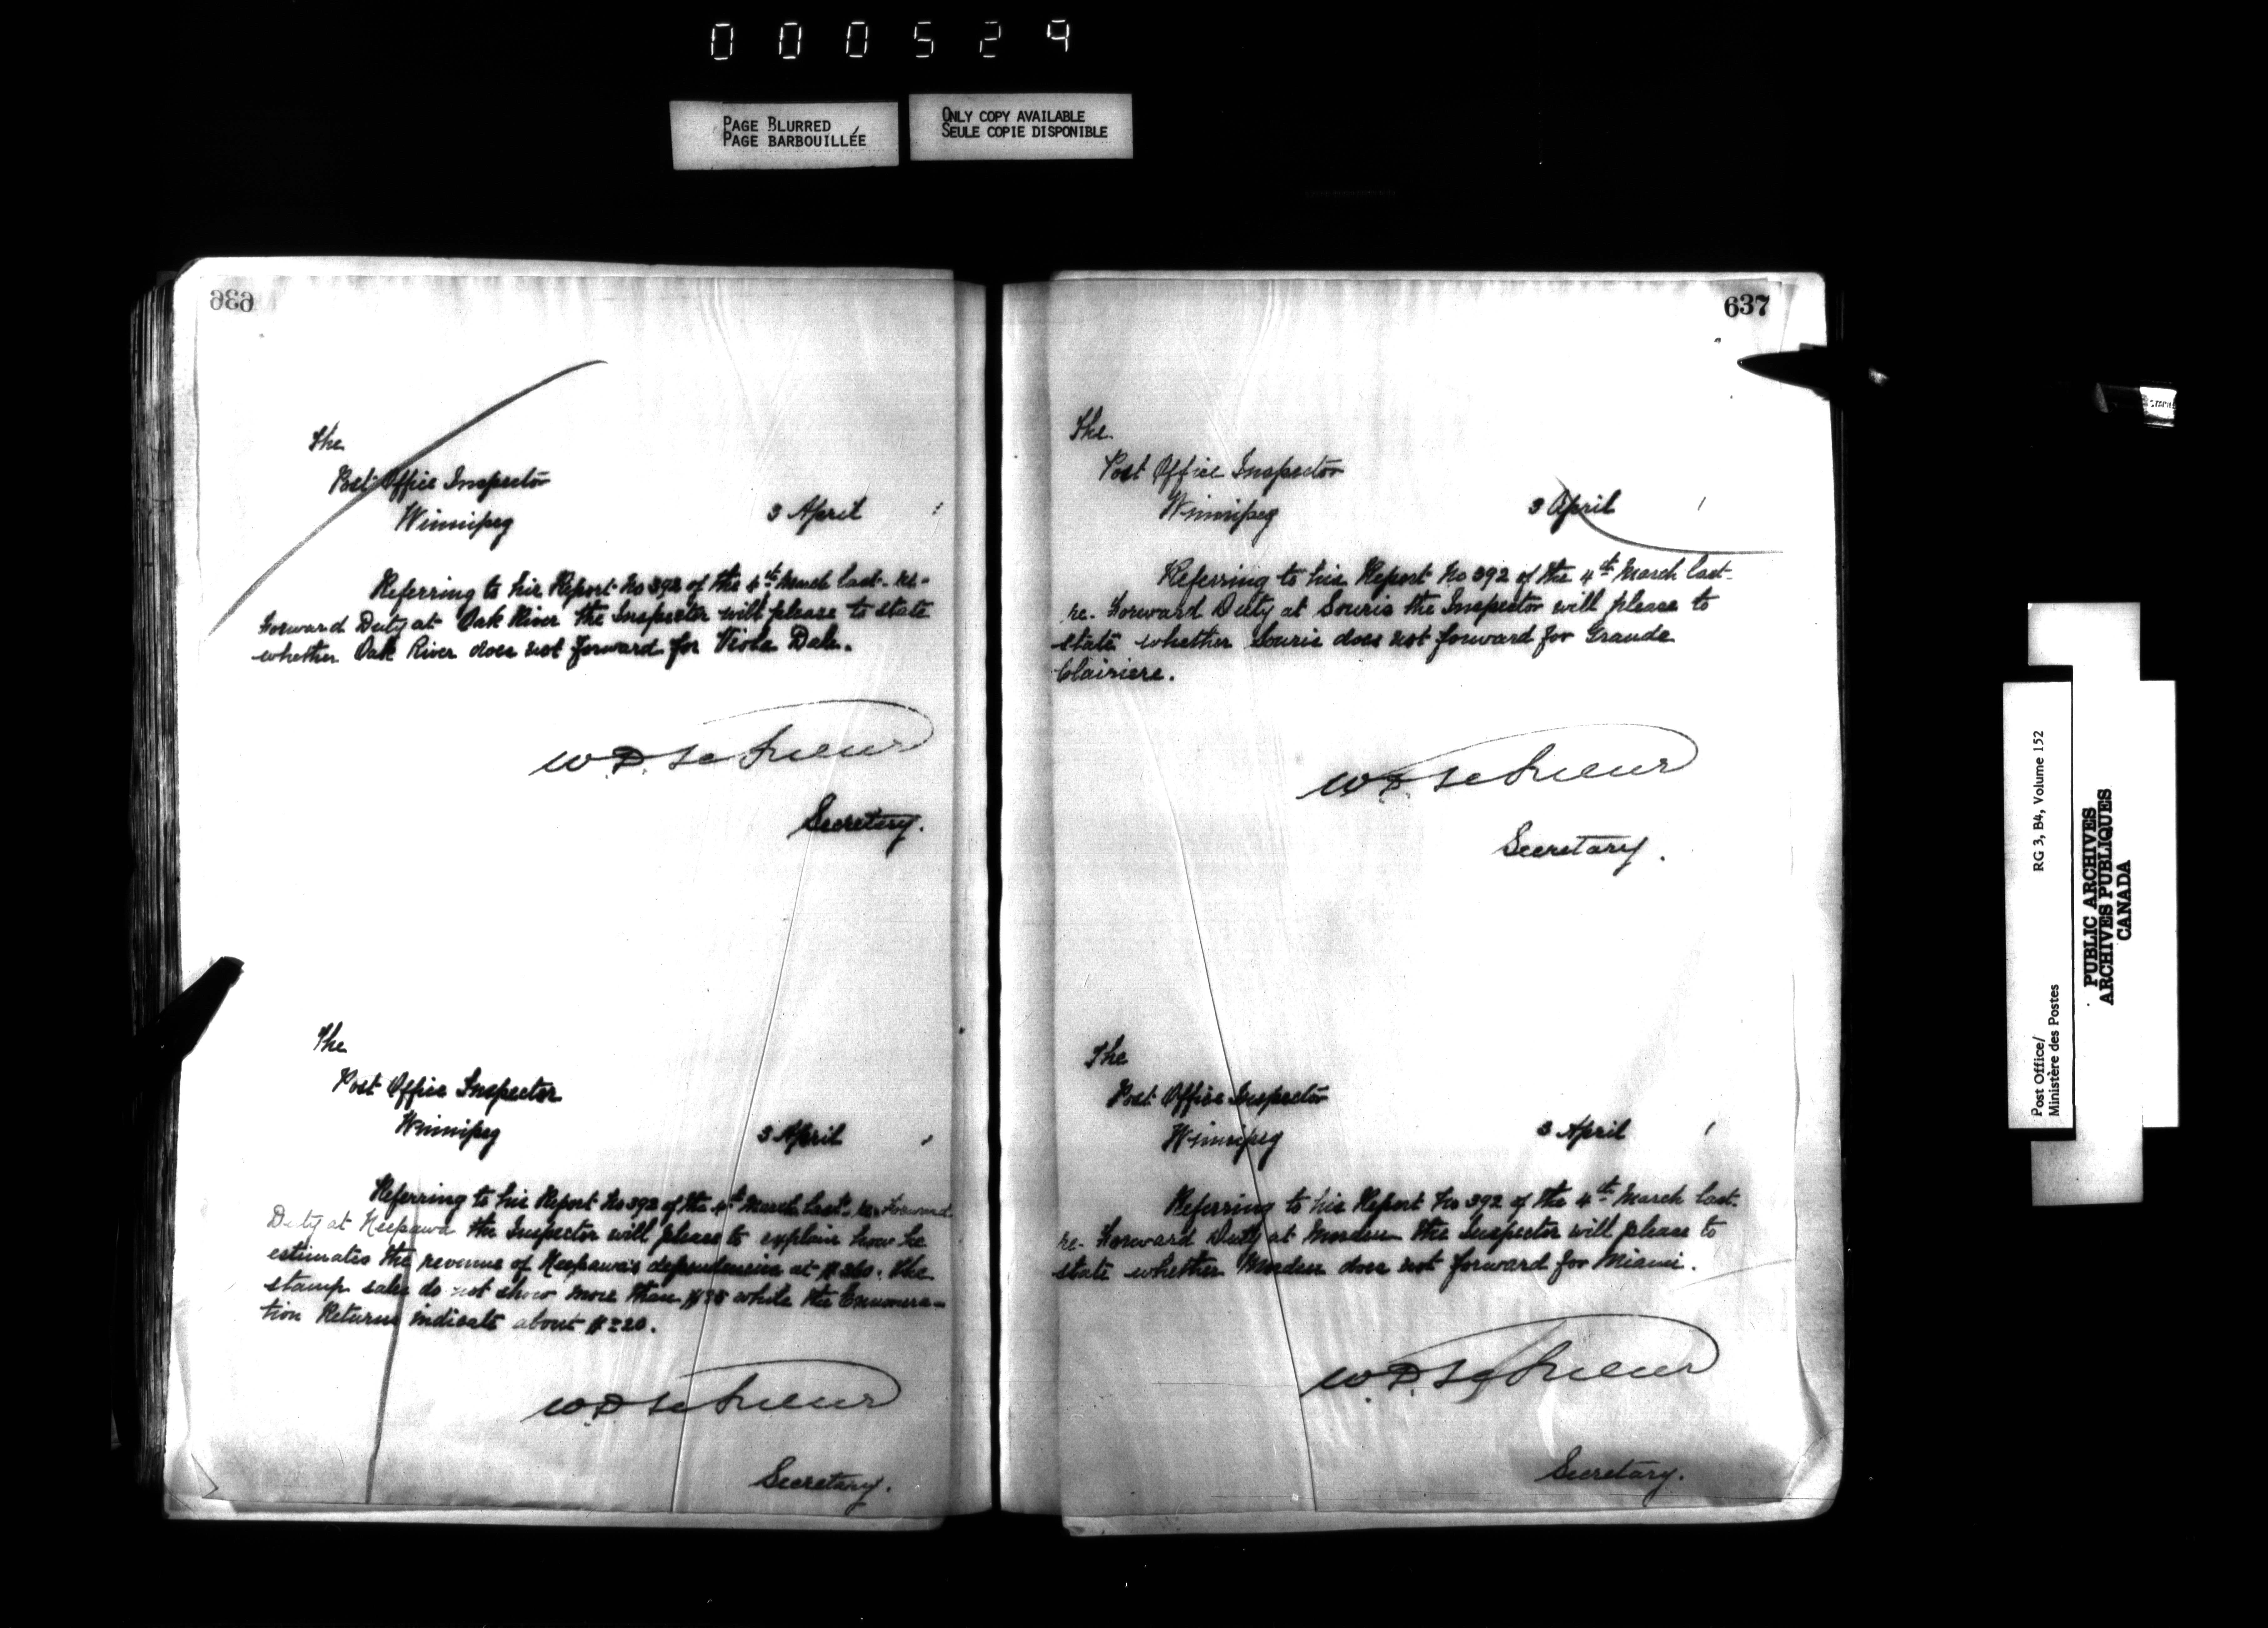 000529
PAGE BLURRED
PAGE BARBOUILLÉE
ONLY COPY AVAILABLE
SEULE COPIE DISPONIBLE
636
The
Post Office Inspector
Winnipeg
3 April 1
Referring to his Report No 392 of the 4th March last- re-
Forward Duty at Oak River the Inspector will please to state
whether Oak River does not forward for Viola Dale.
W.D. LeSueur
Secretary.
The
Post Office Inspector
Winnipeg
3 April 1
Referring to his Report No 392 of the 4th March last- re- Forward
Duty at Neepawa the Inspector will please to explain how he
estimates the revenue of Neepawa's dependencies at $260. The
stamp sales do not show more than while the Enumera-
tion Returns indicate about
W.D. LeSueur
Secretary.
637
The
Post Office Inspector
Winnipeg
3 April 1
Referring to his Report No 392 of the 4th March last-
re- Forward Duty at Souris the Inspector will please to
state whether Souris does not forward for Grande
Clairiere.
W.D. LeSueur
Secretary.
The
Post Office Inspector
Winnipeg
3 April 1
Referring to his Report No 392 of the 4th March last-
re- Forward Duty at Morden the Inspector will please to
state whether Morden does not forward for Miami.
W.D. LeSueur
Secretary.
Post Office/
Ministère des Postes
RG 3, B4, Volume 152
PUBLIC ARCHIVES
ARCHIVES PUBLIQUES
CANADA